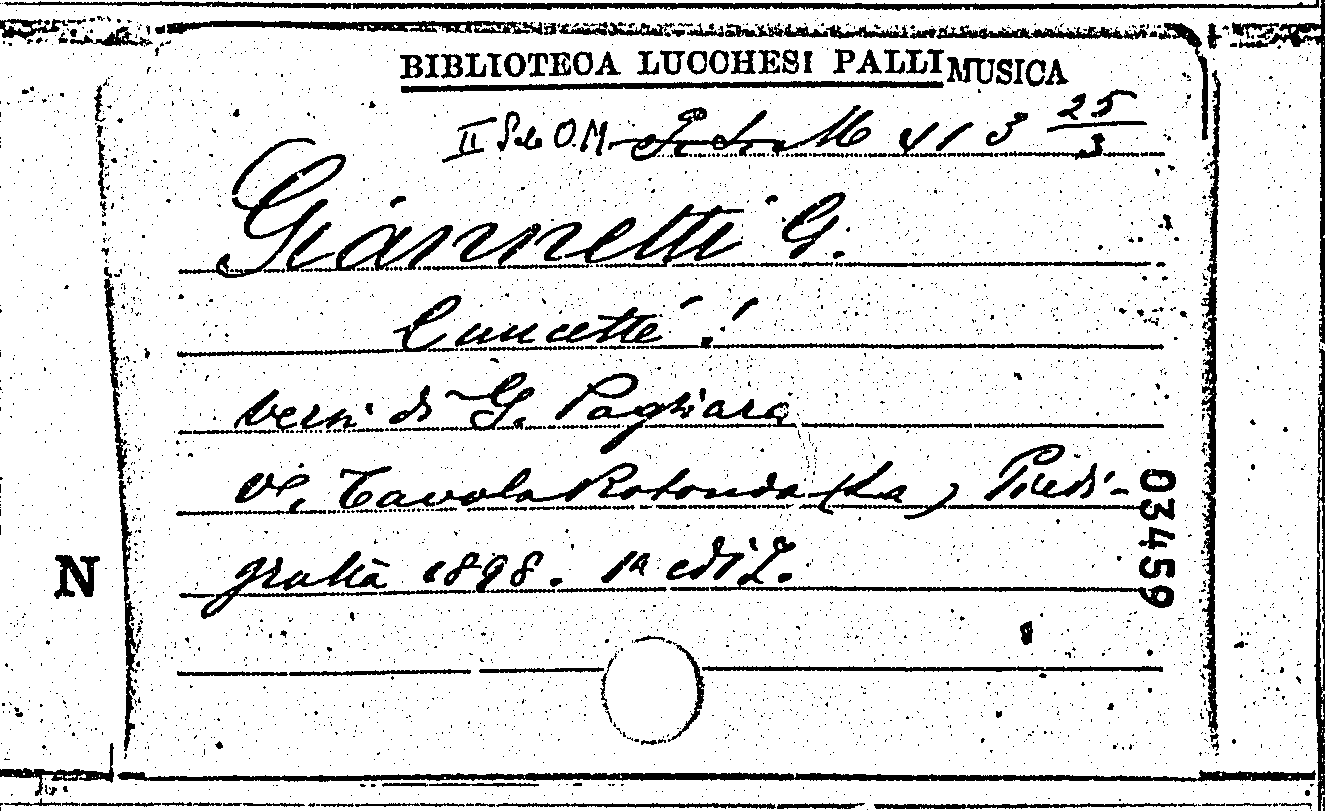 BIBLIOTECA LUCCHESI PALLI MUSICA
II Sala O.M. M 413 25/3
Giannetti G.
Cuncette'!
versi di G. Pagliara
V. Tavola Rotonda (La) Piedi-
grotta 1898. 1a ediz.
03459
N